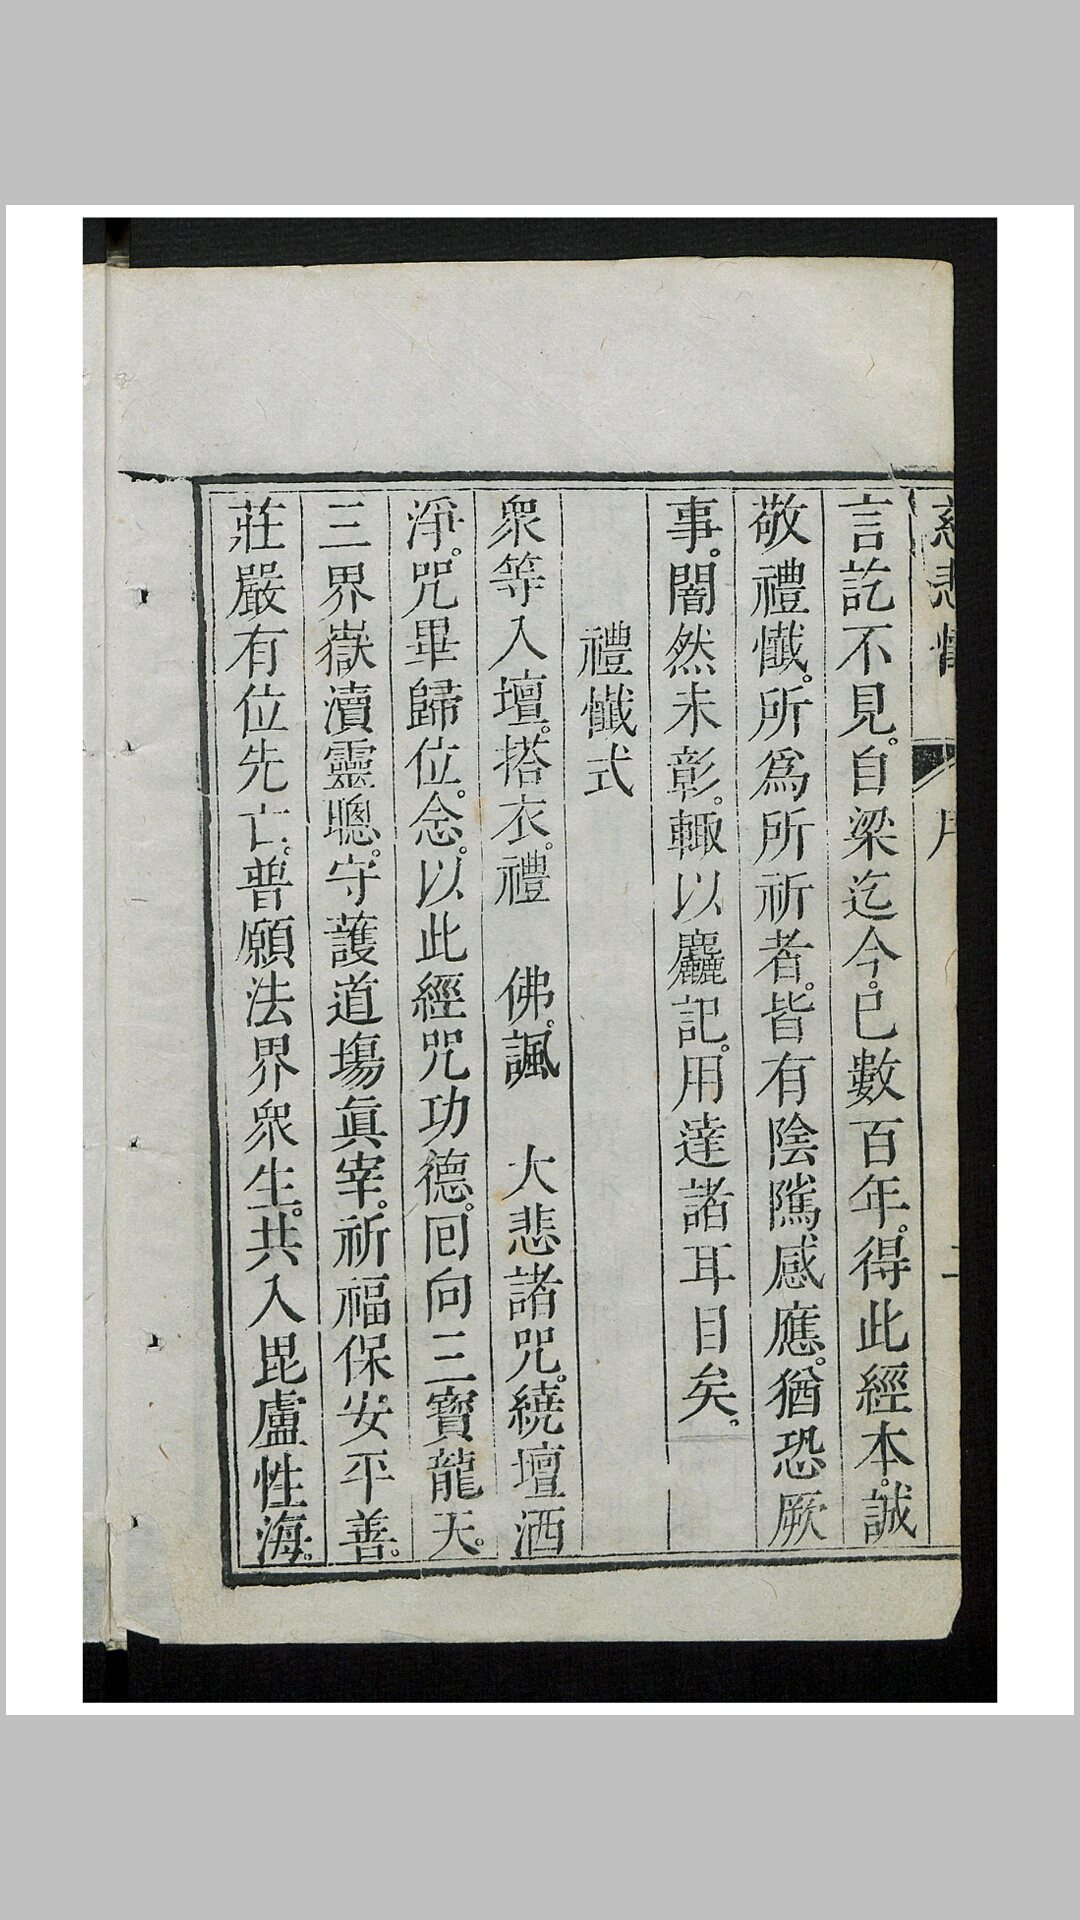 慈悲懺 序 二
言訖不見。自梁迄今。已數百年。得此經本。誠
敬禮懺。所爲所祈者。皆有陰隲感應。猶恐厥
事。闇然未彰。輙以麤記。用達諸耳目矣。
禮懺式
衆等入壇。搭衣。禮 佛。諷 大悲諸咒。繞壇洒
淨。咒畢歸位。念。以此經咒功德。回向三寶龍天。
三界嶽瀆靈聰。守護道塲眞宰。祈福保安平善。
莊嚴有位先亡。普願法界衆生。共入毘盧性海。